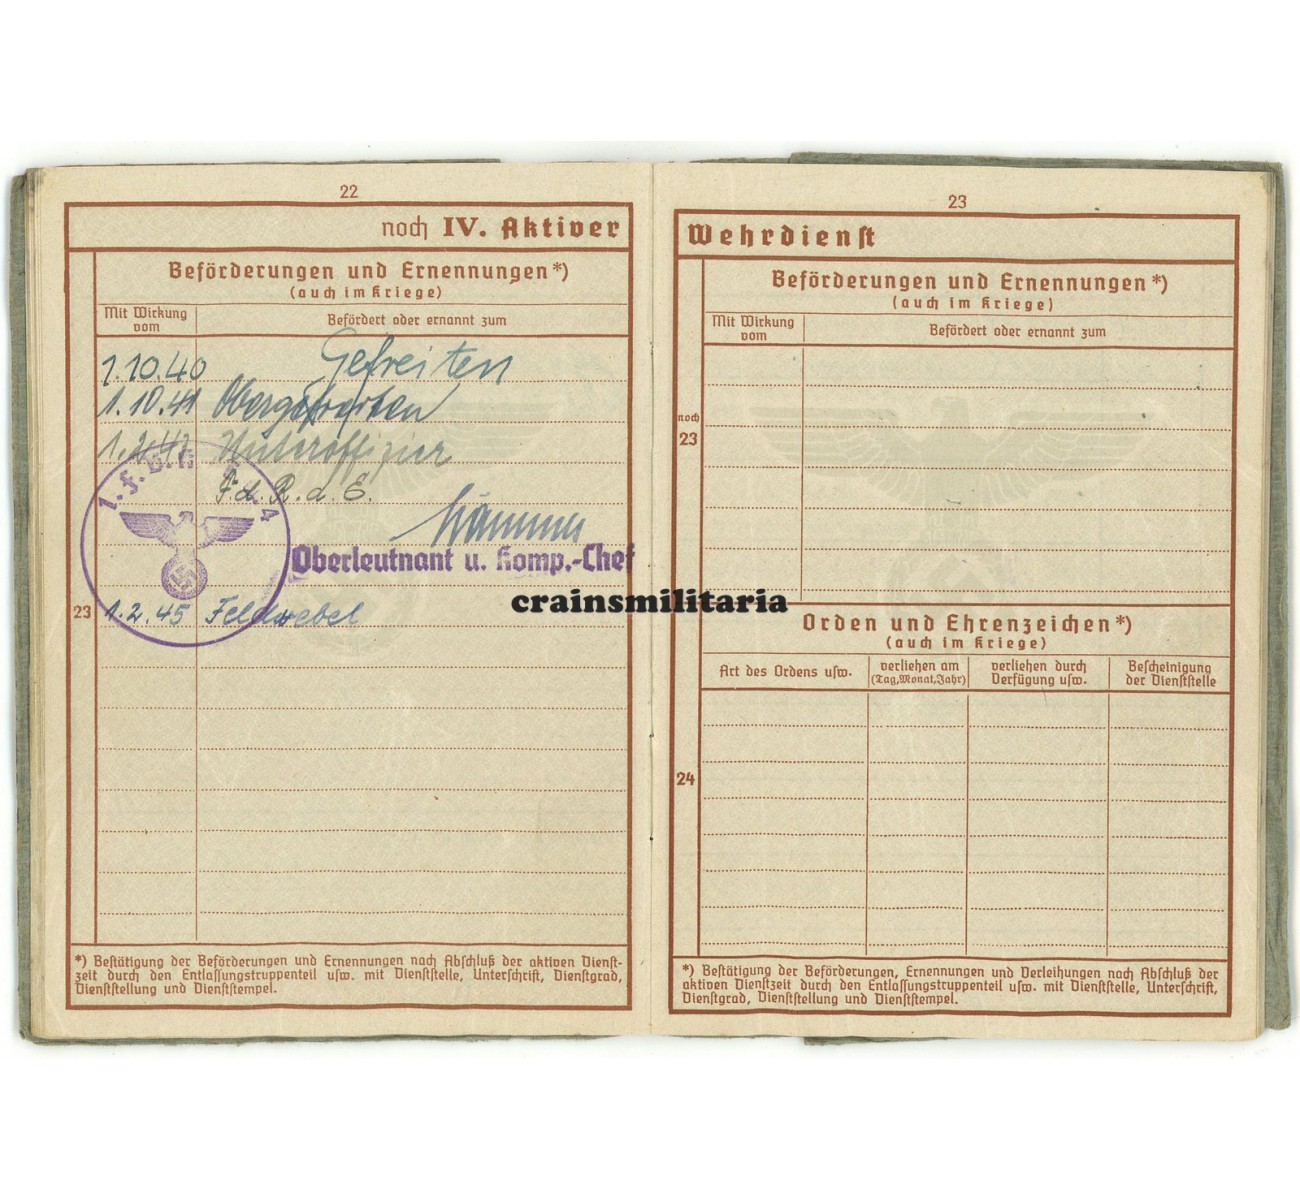 22
noch IV. Aktiver
Beförderungen und Ernennungen*)
(auch im Kriege)
Mit Wirkung vom
Befördert oder ernannt zum
1.10.40 Gefreiten
1.10.41 Obergefreiten
Unteroffizier
F. d. R. d. E.
Oberleutnant u. Komp.-Chef
23 1.2.45 Feldwebel
*) Bestätigung der Beförderungen und Ernennungen nach Abschluß der aktiven Dienst-
zeit durch den Entlassungstruppenteil usw. mit Dienststelle, Unterschrift, Dienstgrad,
Dienststellung und Dienststempel.
23
Wehrdienst
Beförderungen und Ernennungen*)
(auch im Kriege)
Mit Wirkung vom
Befördert oder ernannt zum
noch
23
crainsmilitaria
Orden und Ehrenzeichen*)
(auch im Kriege)
Art des Ordens usw.
verliehen am
(Tag, Monat, Jahr)
verliehen durch
Verfügung usw.
Bescheinigung
der Dienststelle
24
*) Bestätigung der Beförderungen, Ernennungen und Verleihungen nach Abschluß der
aktiven Dienstzeit durch den Entlassungstruppenteil usw. mit Dienststelle, Unterschrift,
Dienstgrad, Dienststellung und Dienststempel.